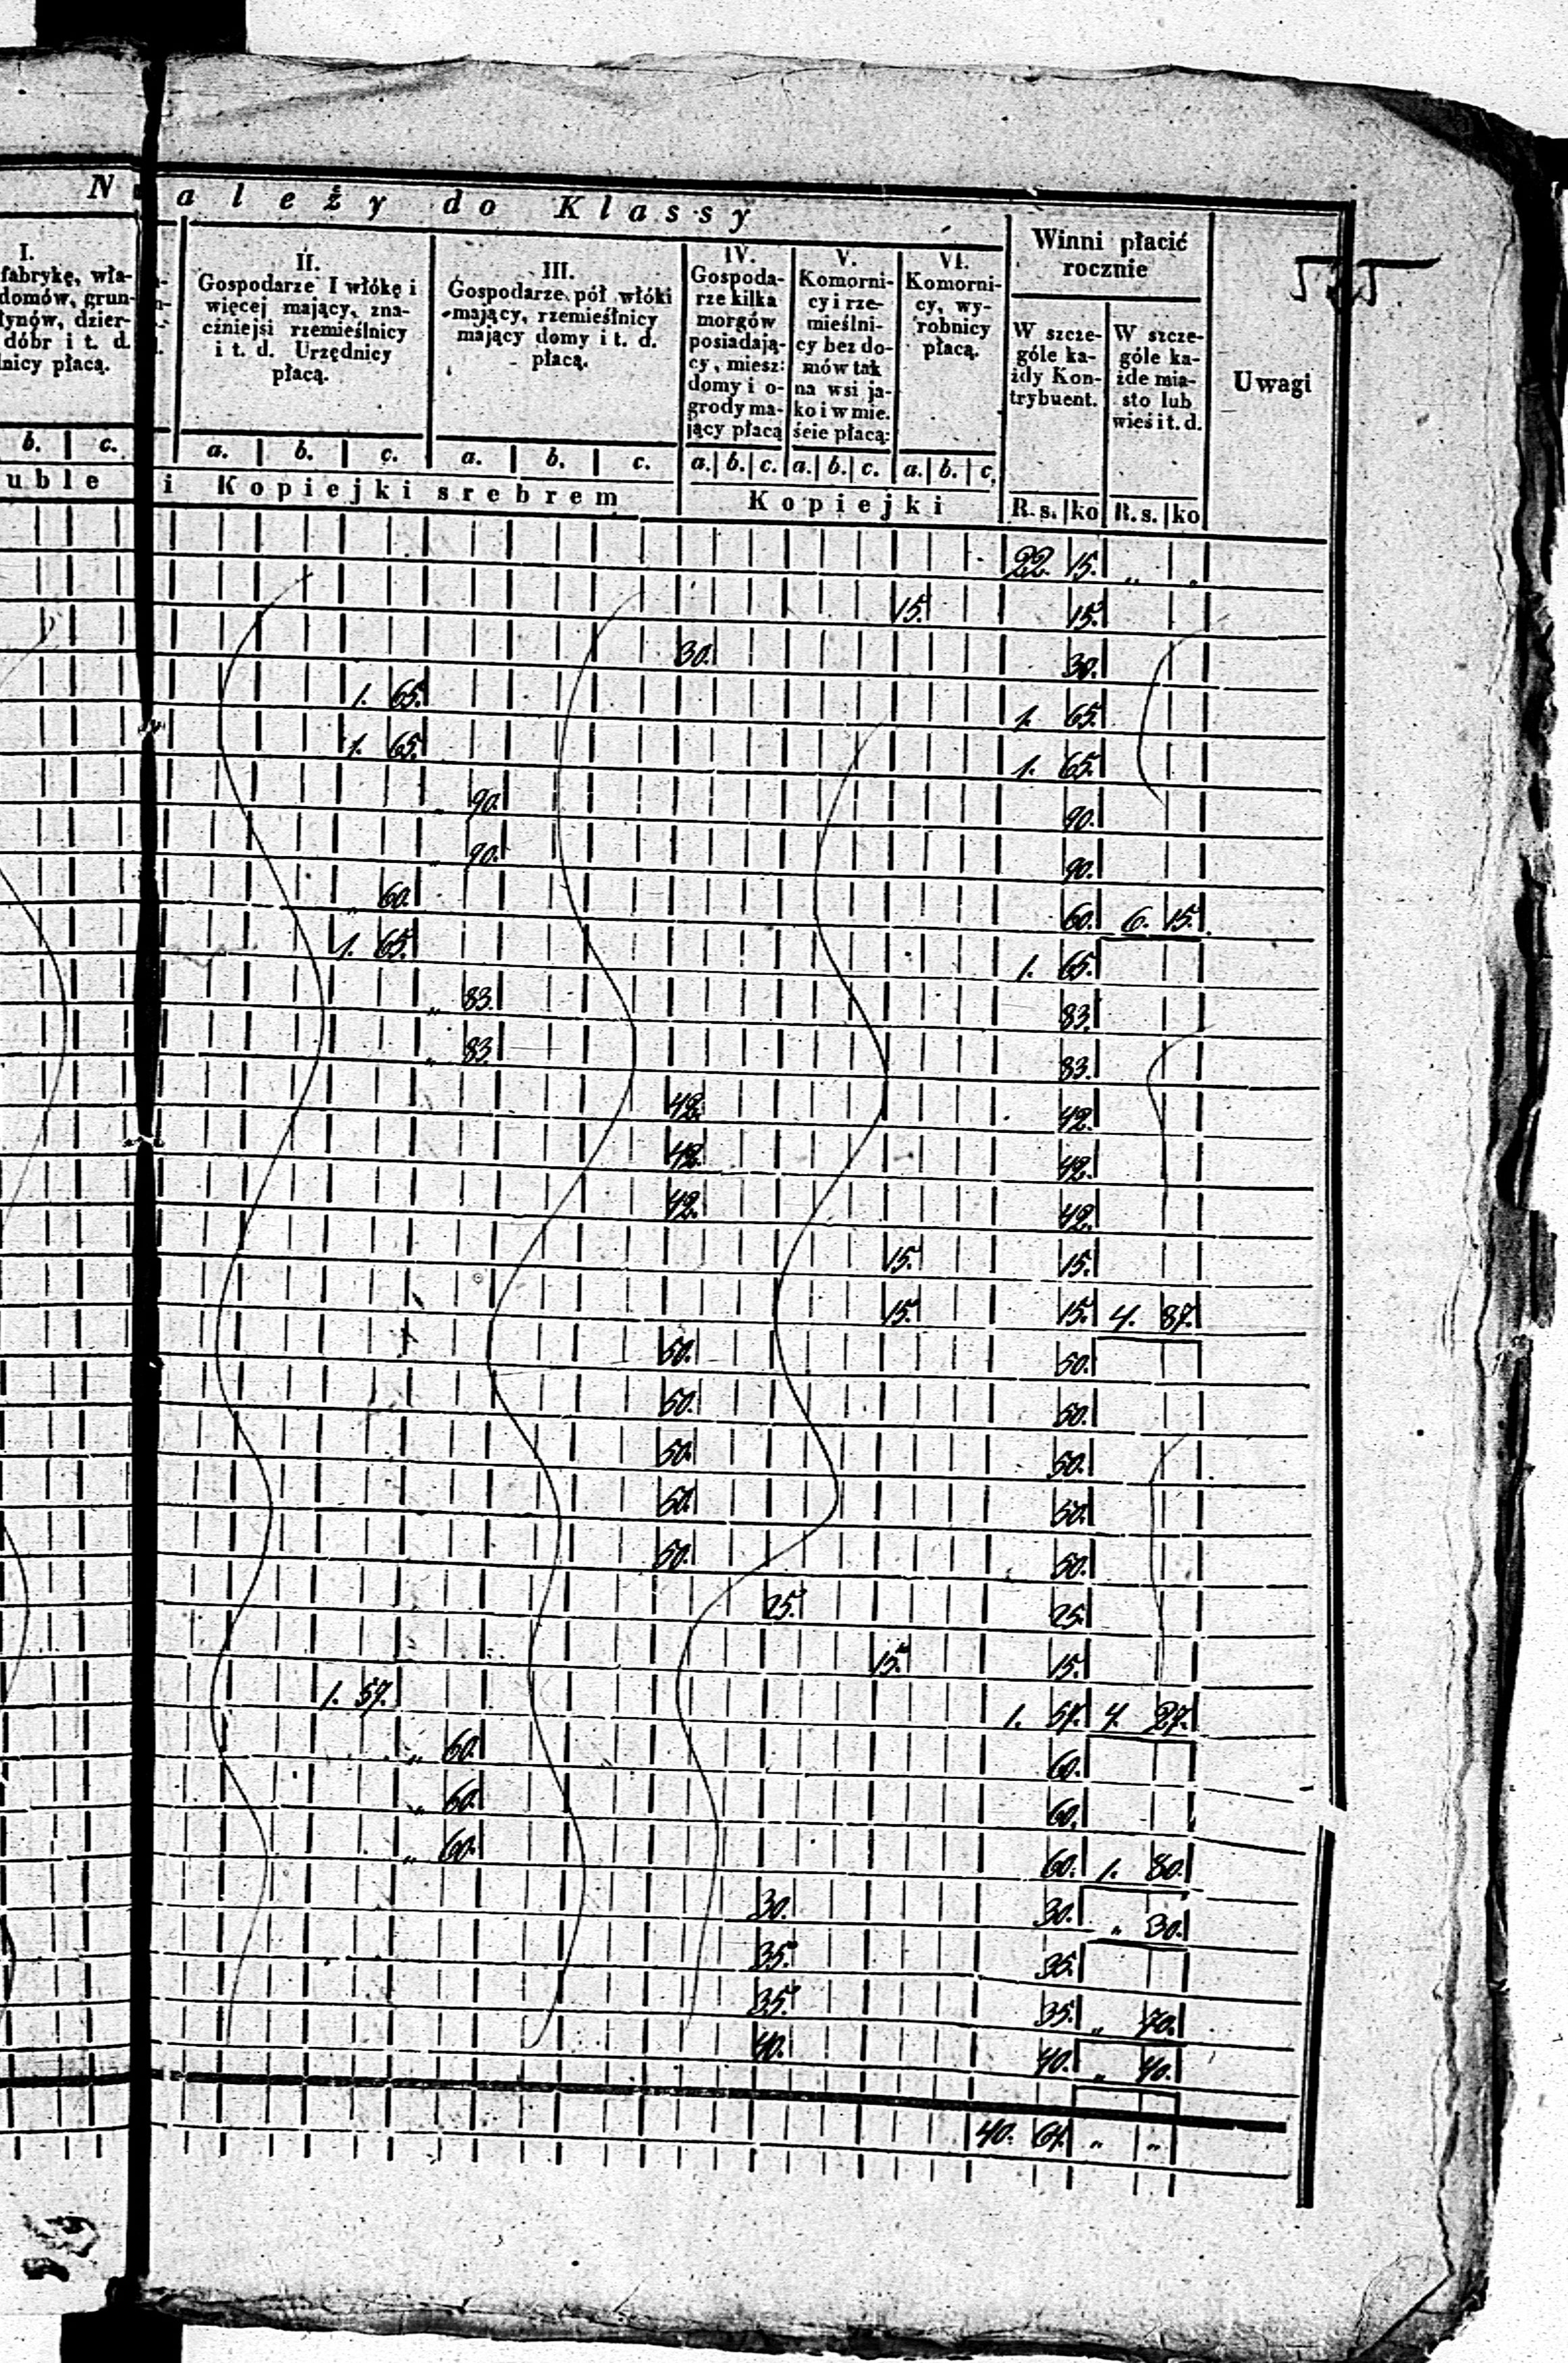 N a l e ż y do K l a s s y
I.
fabrykę, wła-
domów, grun-
łynów, dzier-
dóbr i t. d.
lnicy płacą.
II.
Gospodarze I włókę i
więcej mający, zna-
czniejsi rzemieślnicy
i t. d. Urzędnicy
płacą.
III.
Gospodarze pół włóki
mający, rzemieślnicy
mający domy i t. d.
płacą.
IV.
Gospoda-
rze kilka
morgów
posiadają-
cy, miesz:
domy i o-
grody ma-
jący płacą
V.
Komorni-
cy i rze-
mieślni-
cy bez do-
mów tak
na wsi ja-
ko i w mie.
ście płacą:
VI.
Komorni-
cy, wy-
robnicy
płacą.
Winni płacić
rocznie
W szcze-
góle ka-
żdy Kon-
trybuent.
W szcze-
góle ka-
żde mia-
sto lub
wieś i t. d.
Uwagi
b. c. a. b. c. a. b. c. a. b. c. a. b. c. a. b. c.
uble i Kopiejki srebrem Kopiejki R. s. ko R. s. ko
22. 15. „ „
15. 15.
30. 30.
1. 65. 1. 65.
1. 65. 1. 65.
„ 90. 90.
„ 90. 90.
„ 60. 60. 6. 15.
1. 65. 1. 65.
„ 83. 83.
„ 83. 83.
42. 42.
42. 42.
42. 42.
15. 15.
15. 15. 4. 87.
50. 50.
50. 50.
50. 50.
50. 50.
50. 50.
25. 25.
15. 15.
1. 57. 1. 57. 4. 27.
„ 60. 60.
„ 60. 60.
„ 60. 60. 1. 80.
30. 30. „ 30.
35. 35.
35. 35. „ 70.
40. 40. „ 40.
40. 64. „ „